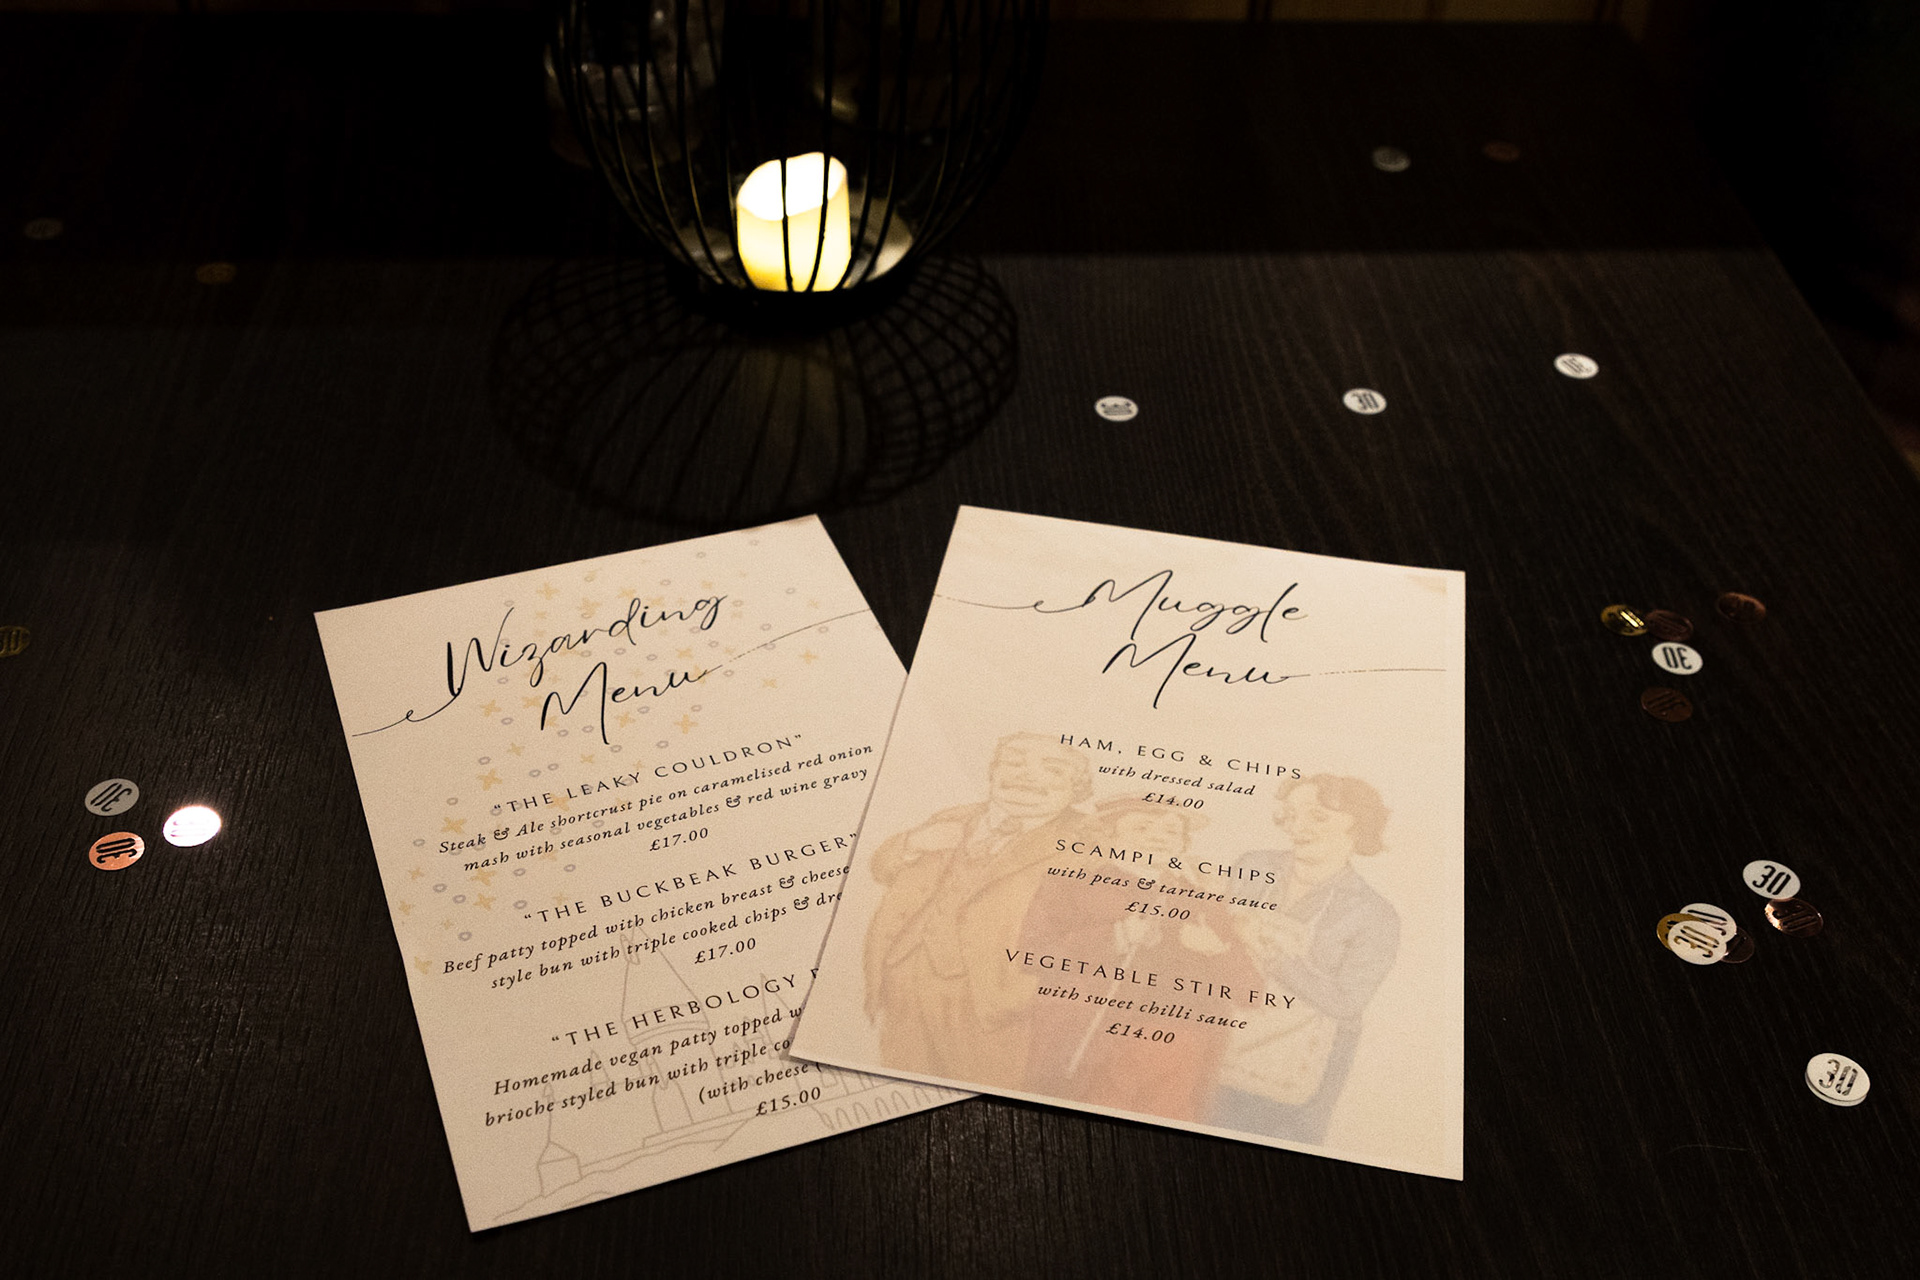 Wizarding
Menu
"THE LEAKY COULDRON"
Steak & Ale shortcrust pie on caramelised red onion
mash with seasonal vegetables & red wine gravy
£17.00
"THE BUCKBEAK BURGER"
Beef patty topped with chicken breast & cheese
style bun with triple cooked chips &
£17.00
"THE HERBOLOGY
Homemade vegan patty topped
brioche styled bun with triple
(with cheese
£15.00
Muggle
Menu
HAM, EGG & CHIPS
with dressed salad
£14.00
SCAMPI & CHIPS
with peas & tartare sauce
£15.00
VEGETABLE STIR FRY
with sweet chilli sauce
£14.00
30
30
30
30
30
30
30
30
30
30